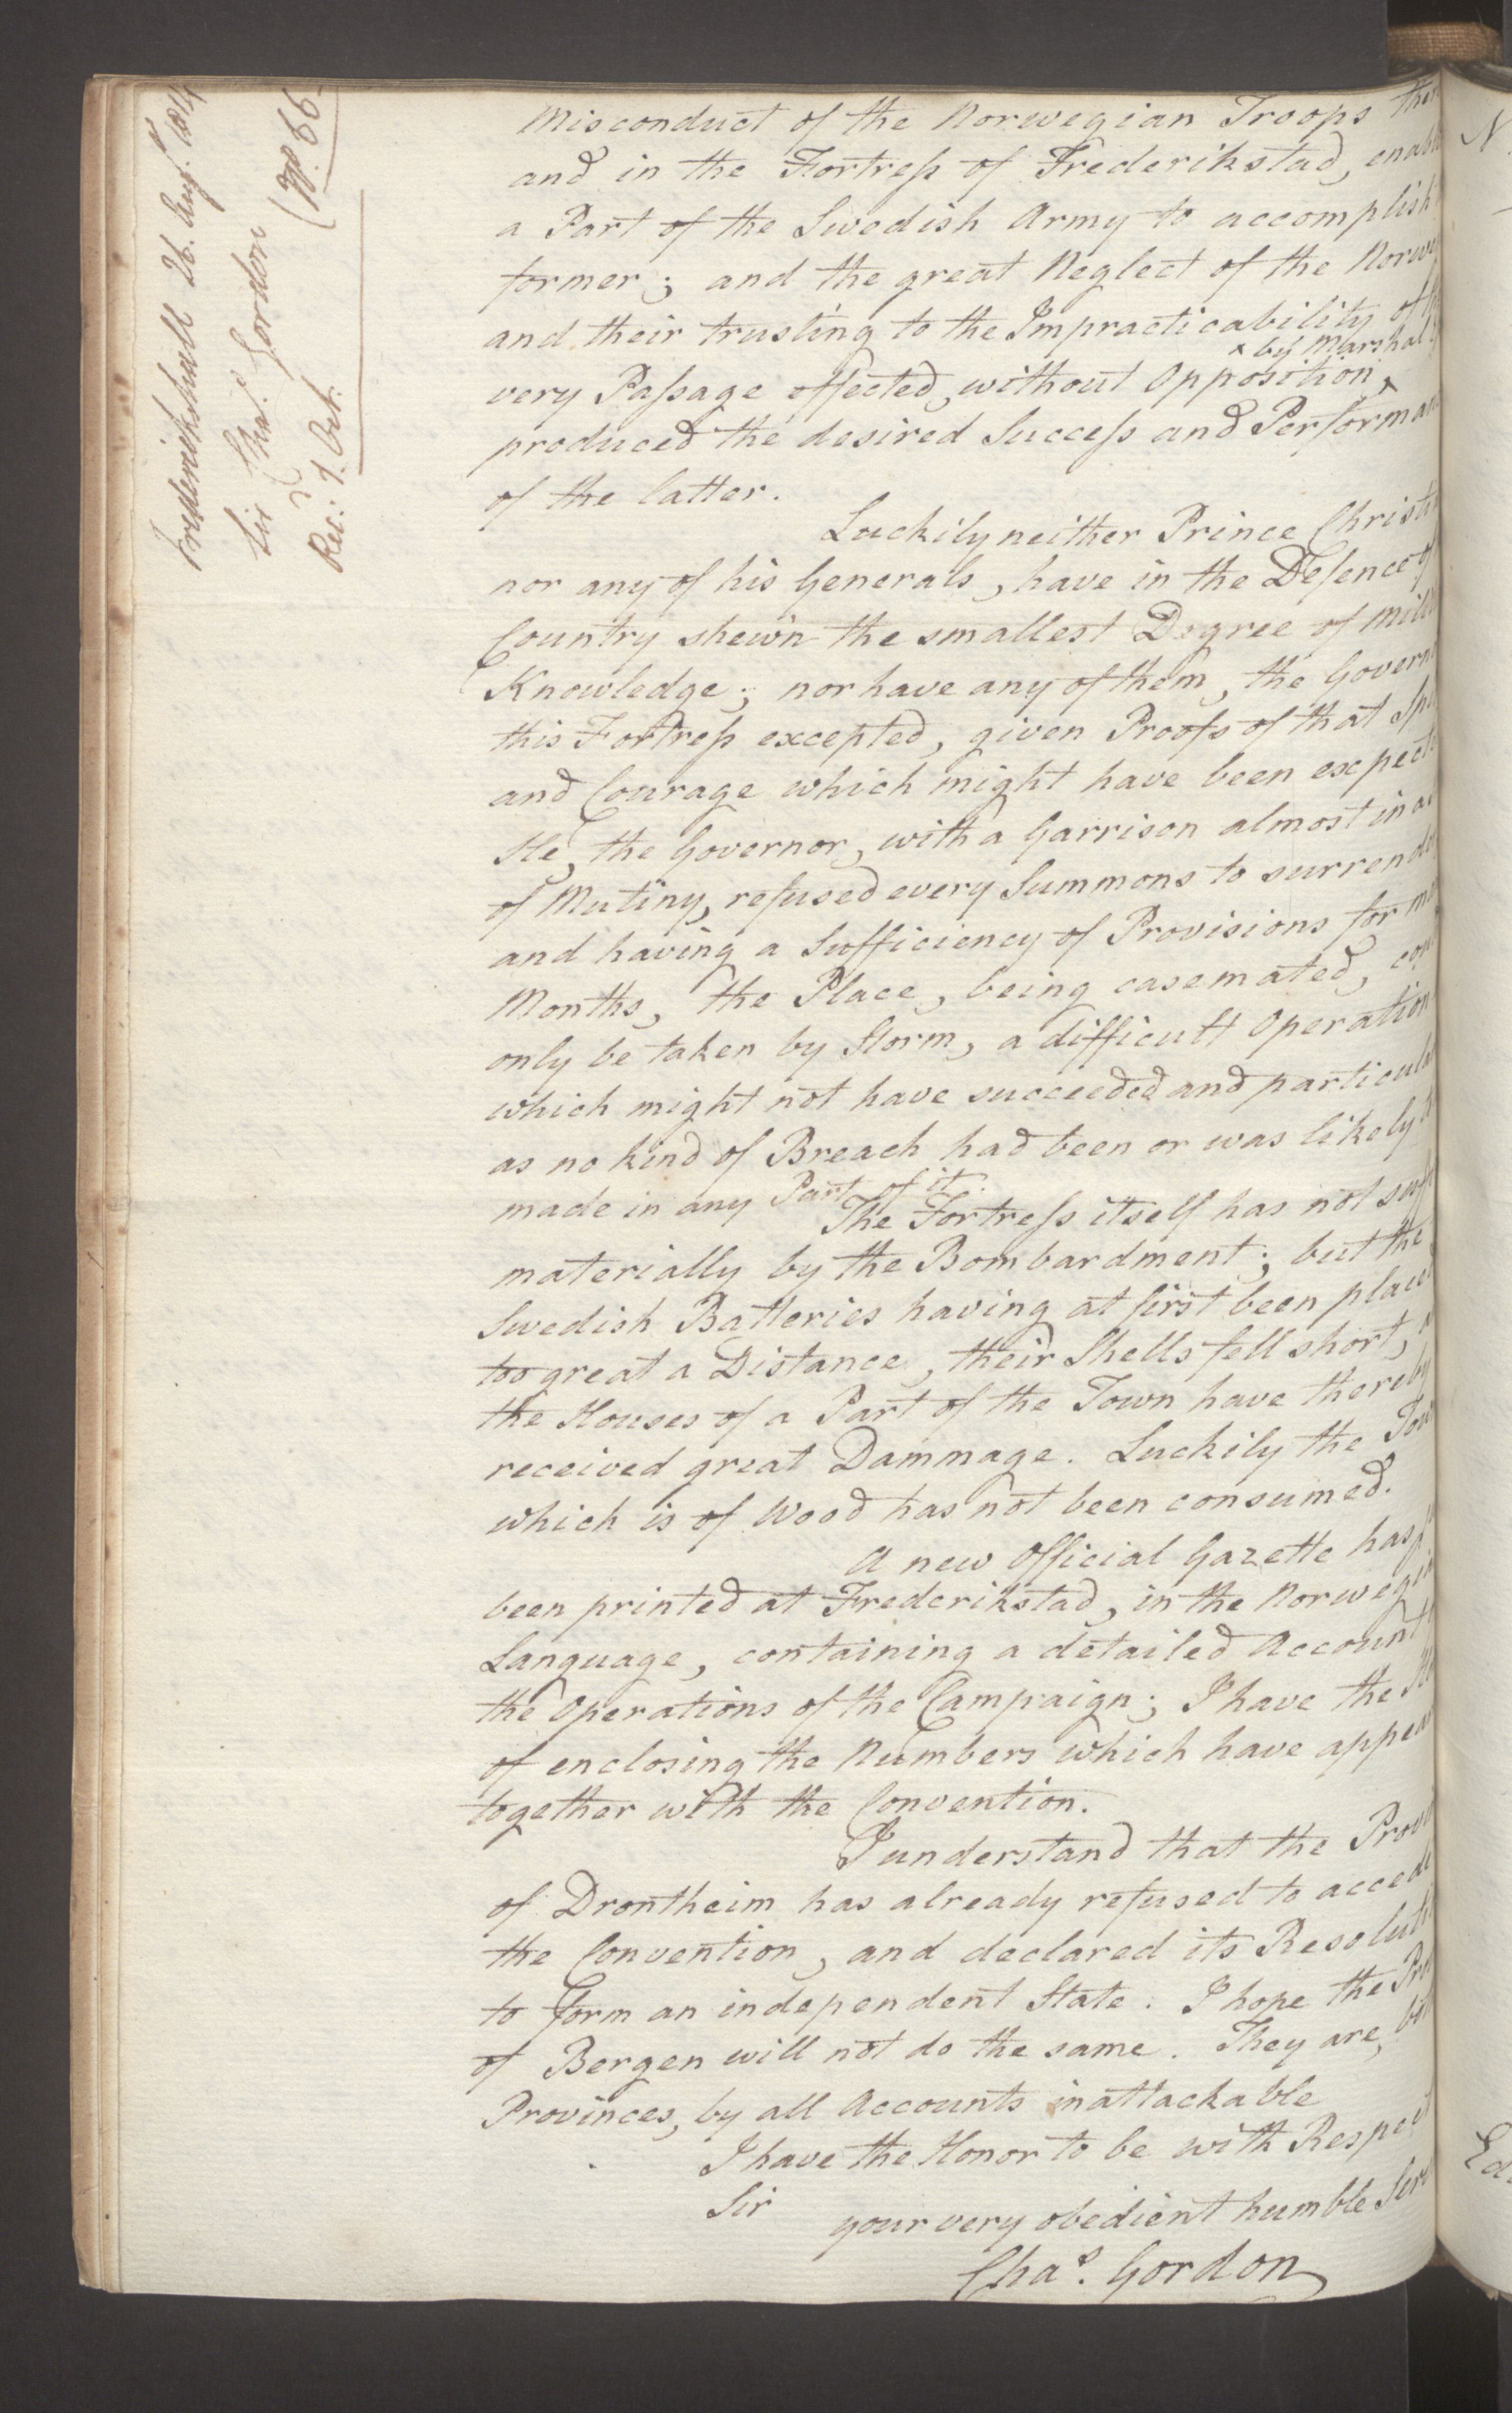 Frederickshall 26. Augt. 1814
Sir Chas. Gordon (pp. 66
Rec: 7. Oct.
Misconduct of the Norwegian Troops
and in the Fortress of Frederikstad,
a Part of the Swedish Army to accomplish
former; and the great Neglect of the
and their trusting to the Impracticability of
x by Marshal
very Passage effected, without Opposition x
produced the desired Success and
of the latter.
Luckily neither Prince
nor any of his Generals, have in the Defence of
Country shewn the smallest Degree of
Knowledge; nor have any of them, the
this Fortress excepted, given Proofs of that
and Courage which might have been
He, the Governor, with a Garrison almost in
of Mutiny, refused every Summons to
and having a Sufficiency of Provisions for
Months, the Place, being casemated,
only be taken by Storm, a difficult Operation
which might not have succeeded and
as no kind of Breach had been or was likely
made in any Part of it.
The Fortress itself has not
materially by the Bombardment; but the
Swedish Batteries having at first been
too great a Distance, their Shells fell short,
the Houses of a Part of the Town have thereby
received great Dammage. Luckily the
which is of Wood has not been consumed.
A new Official Gazette has
been printed at Frederikstad, in the
Language, containing a detailed Account
the Operations of the Campaign; I have the
of enclosing the Numbers which have
together with the Convention.
I understand that the
of Drontheim has already refused to
the Convention, and declared its
to form an independent State. I hope the
of Bergen will not do the same. They are,
Provinces, by all Accounts inattackable
I have the Honor to be with Respect
Sir
your very obedient humble
Chas. Gordon